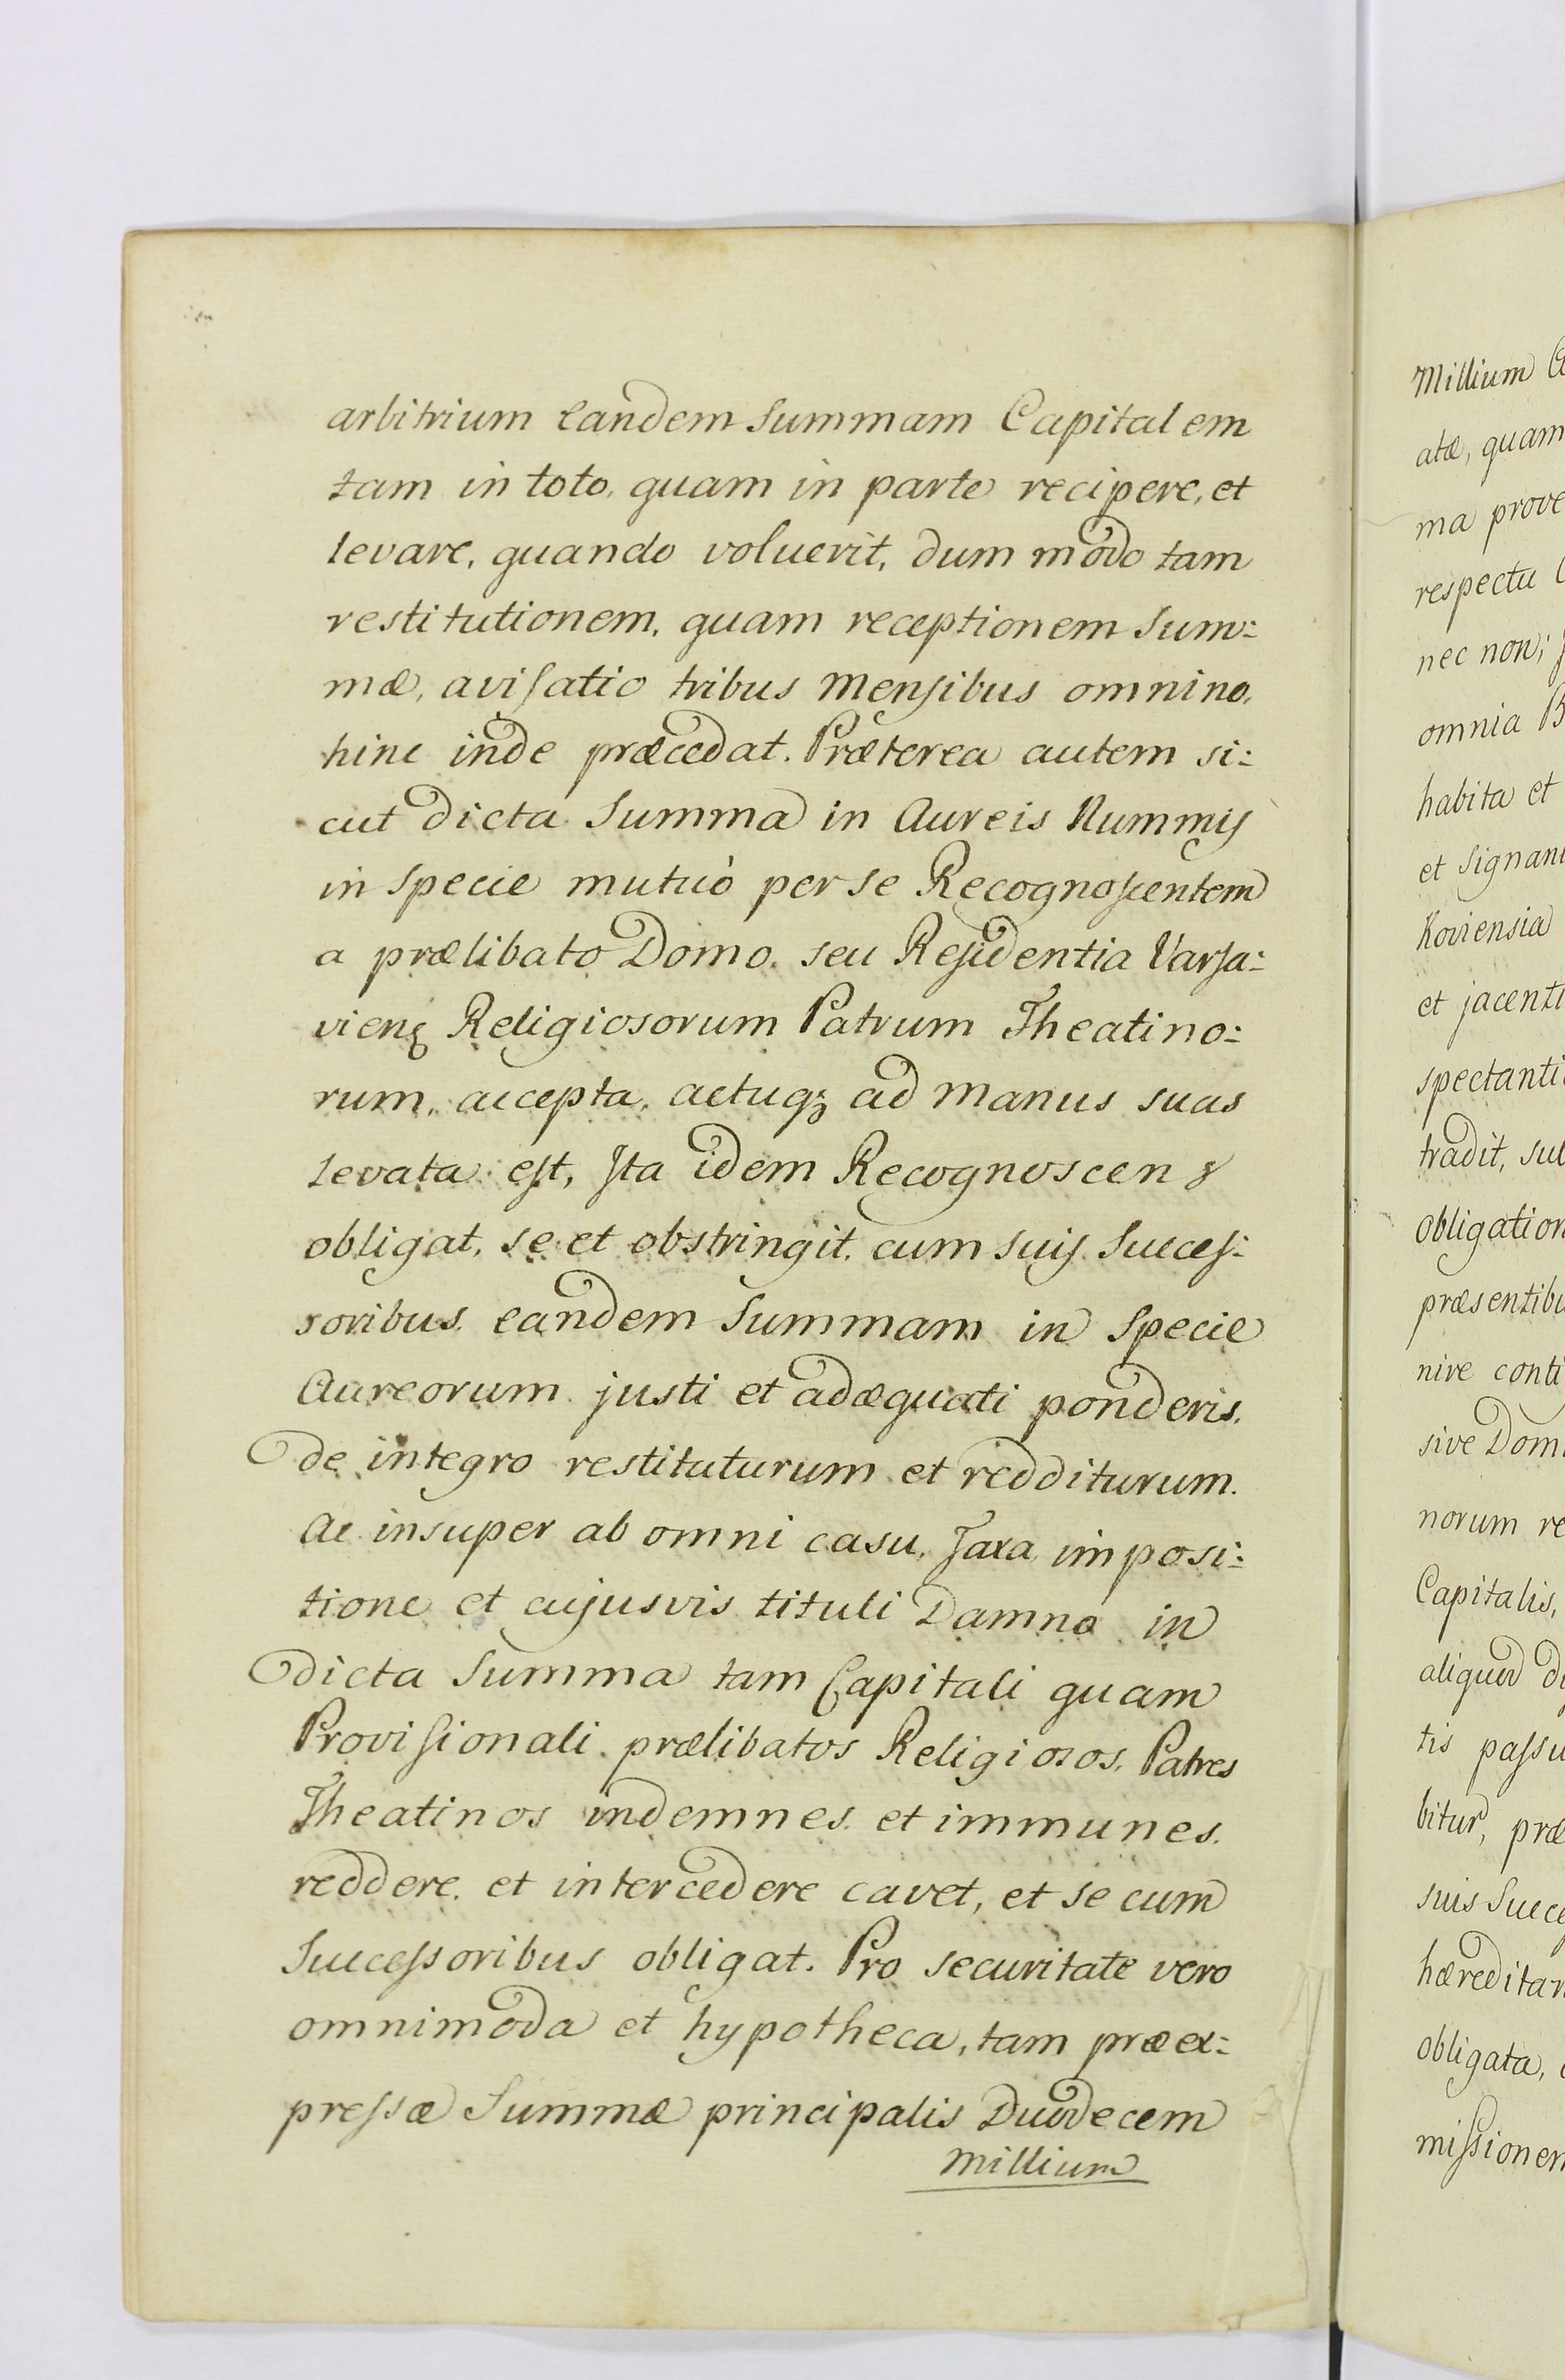 arbitrium eandem Summam Capitalem
tam in toto, quam in parte recipere, et
levare, quando voluerit, dum modo tam
restitutionem, quam receptionem Sum:
mæ, avisatio tribus Mensibus omnino,
hinc inde præcedat. Præterea autem si:
cut dicta Summa in Aureis Nummis
in Specie mutuò per se Recognoscentem
a prælibato Domo, seu Residentia Varsa:
vien Religiosorum Patrum Theatino:
rum, accepta, actuq; ad Manus suas
levata est, Ita idem Recognoscens
obligat, se et obstringit, cum suis Succes:
soribus, eandem Summam in Specie
Aureorum justi et adæquati ponderis,
de integro restituturum et redditurum.
Ac insuper ab omni casu, Taxa, imposi:
tione et cujusvis tituli Damno in
dicta Summa tam Capitali quam
Provisionali prælibatos Religiosos, Patres
Theatinos indemnes et immunes
reddere, et intercedere cavet, et se cum
Successoribus obligat. Pro securitate vero
omnimoda et hypotheca, tam præex:
pressæ Summæ principalis Duodecem
Millium
Millium
atæ, quam
ma prove
respectu
nec non;
omnia B
habita et
et Signan
Koviensia
et jacenti
spectanti
tradit, su
obligation
præsentibu
nire conti
sive Dom
norum re
Capitalis,
aliquod d
tis passu
bitur, præ
suis Succe
hæreditar
obligata,
missionem